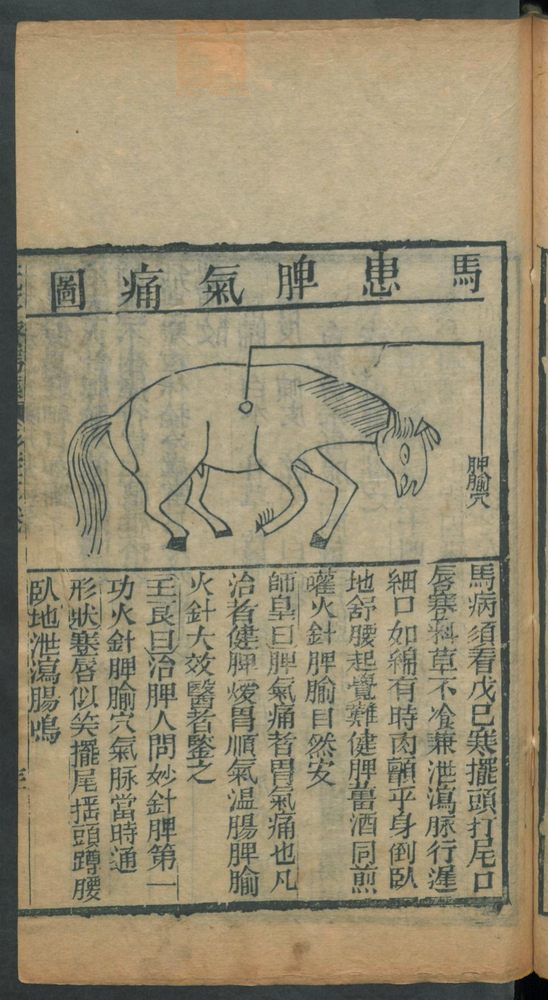 馬患脾氣痛圖
脾腧穴
馬病須看戊巳寒擺頭打尾口
唇寋料草不飡兼泄瀉脉行遲
細口如綿有時肉顫平身倒臥
地舒腰起覺難健脾薑酒同煎
嚾火針脾腧自然安
師皇曰脾氣痛者胃氣痛也凡
治者健脾煖胃順氣温腸脾腧
火針大效醫者鑒之
王良曰治脾人問妙針脾第一
功火針脾腧穴氣脉當時通
形狀蹇唇似笑擺尾揺頭蹲腰
臥地泄瀉腸鳴